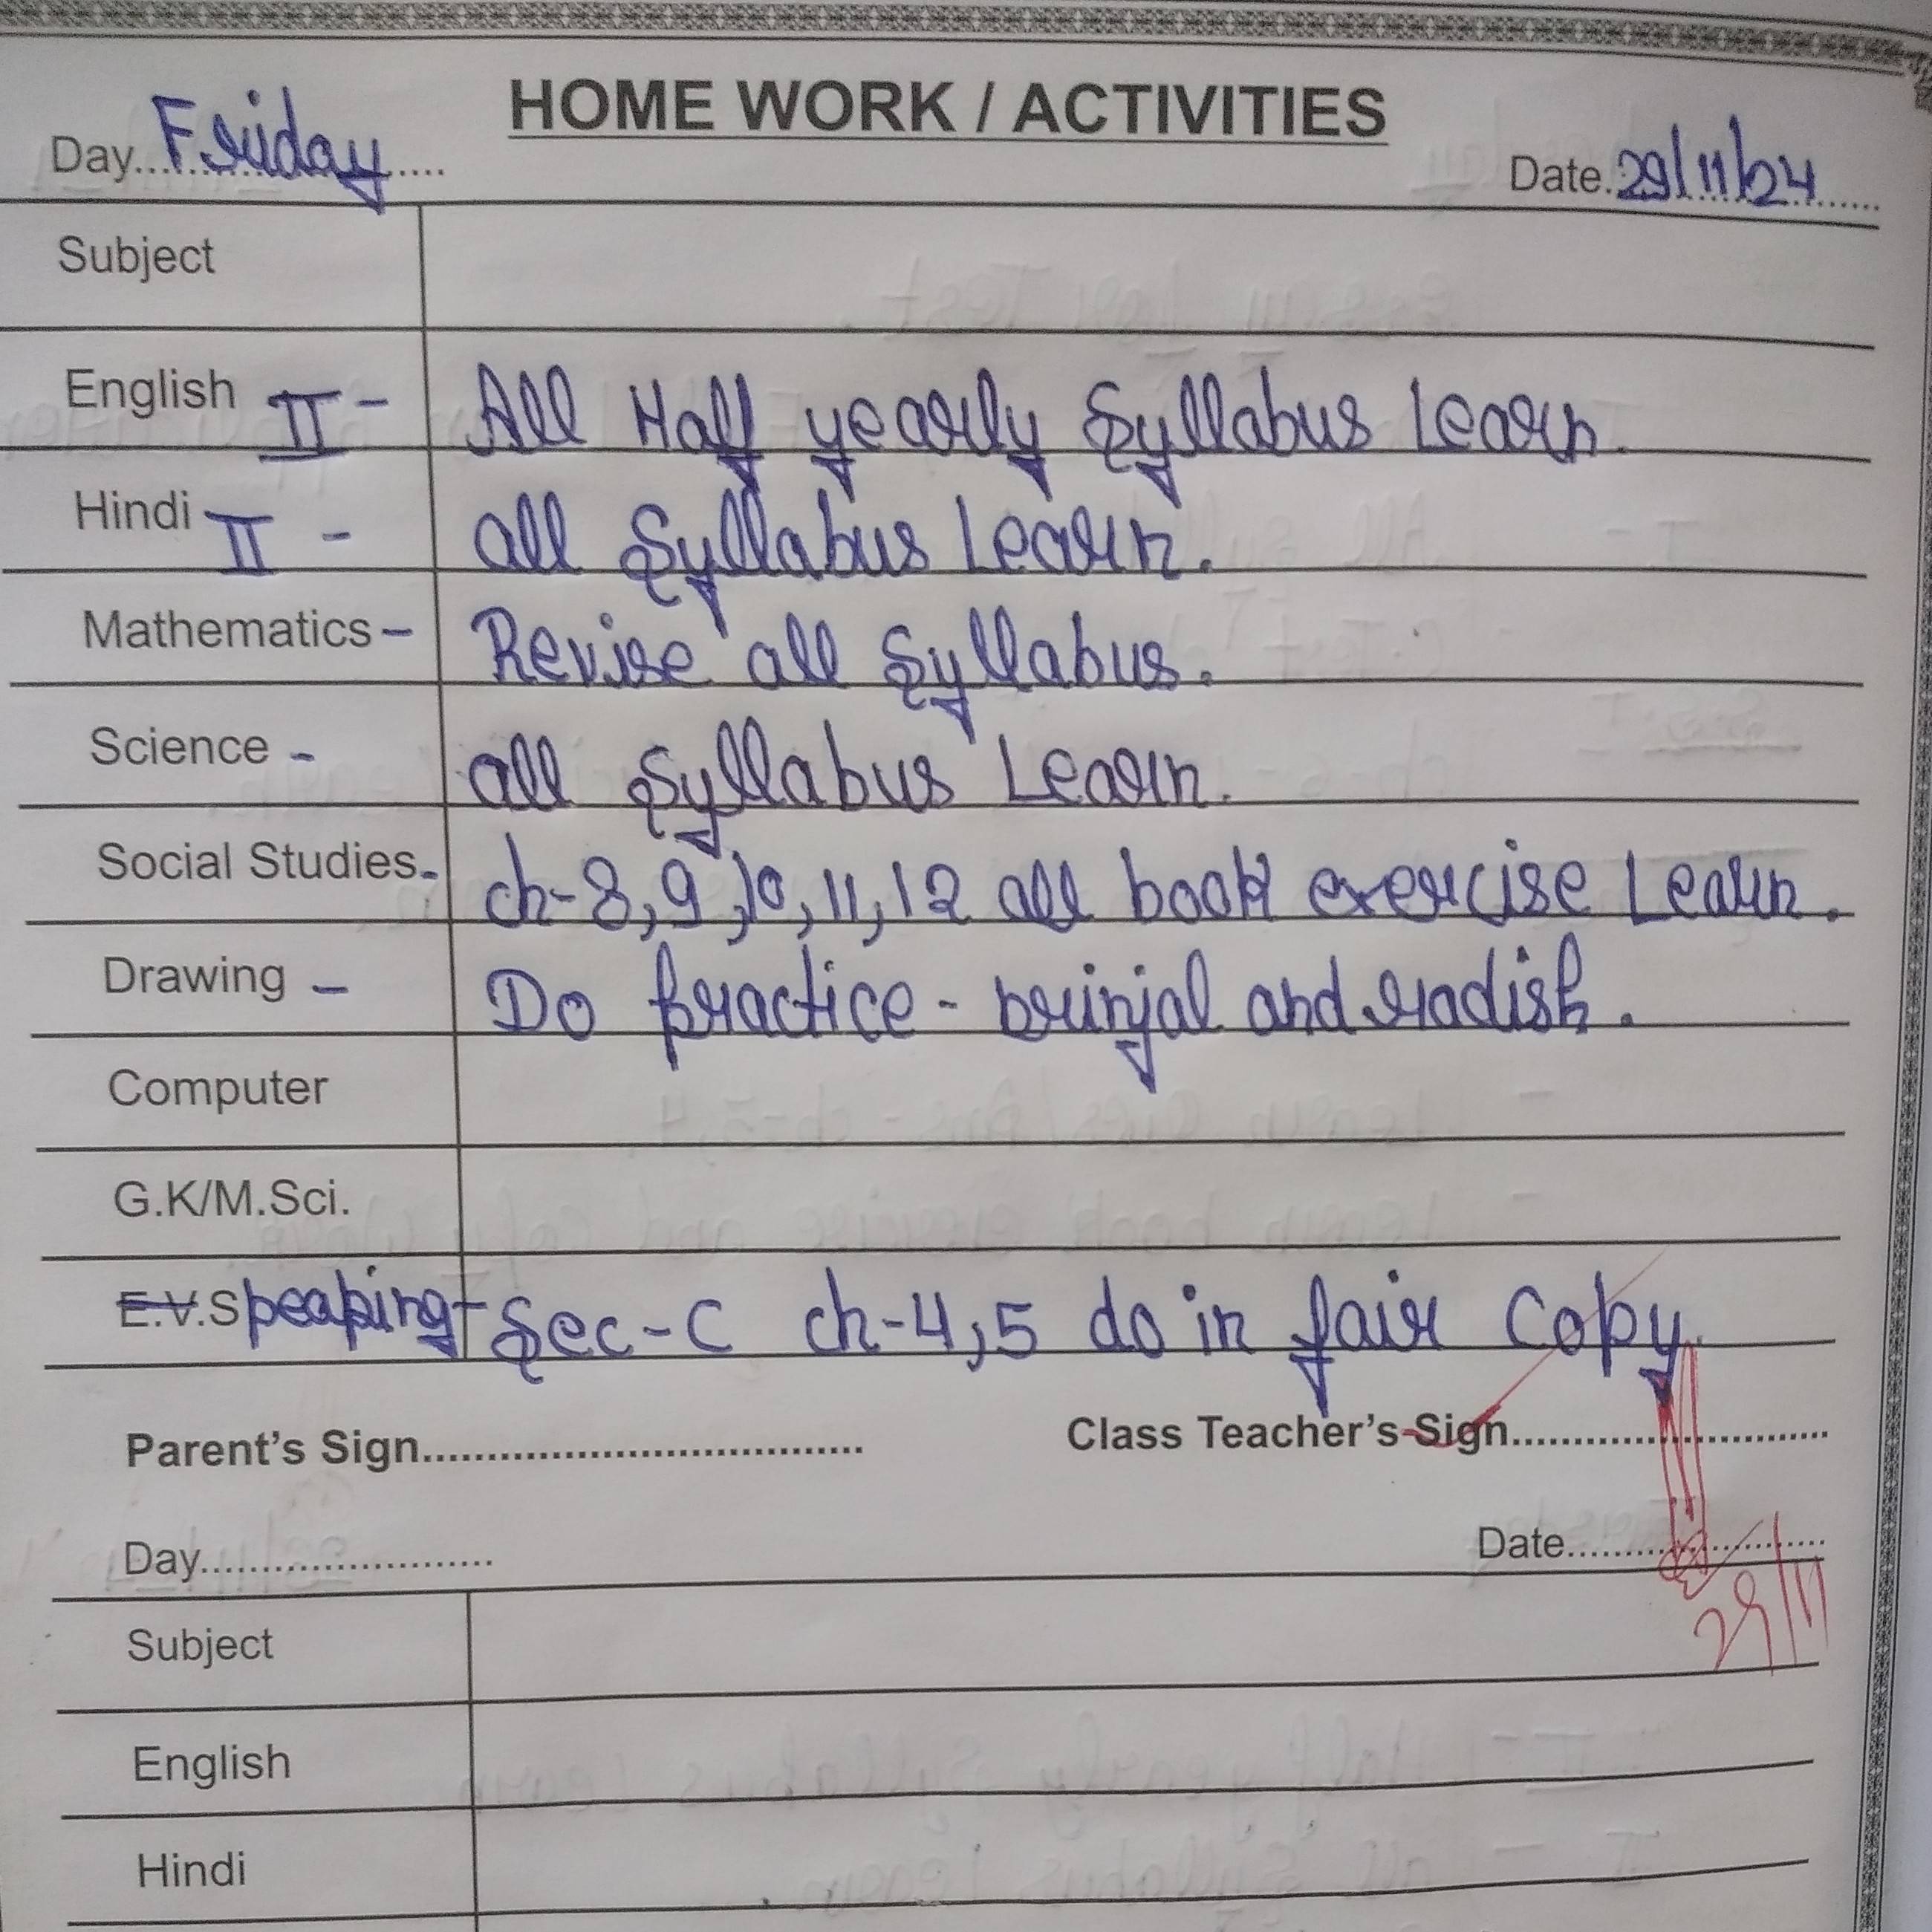 HOME WORK / ACTIVITIES
Day....Friday.... Date.29/11/24....
Subject
English II - All Half yearly Syllabus Learn.
Hindi II - all Syllabus Learn.
Mathematics - Revise all Syllabus.
Science - all Syllabus Learn.
Social Studies - ch-8,9,10,11,12 all book exercise Learn.
Drawing - Do practice - brinjal and radish.
Computer
G.K/M.Sci.
E.V.Speaking - Sec-C ch-4,5 do in fair copy.
Parent's Sign.................................. Class Teacher's Sign..............................
Day......................... Date........................
29/11
Subject
English
Hindi